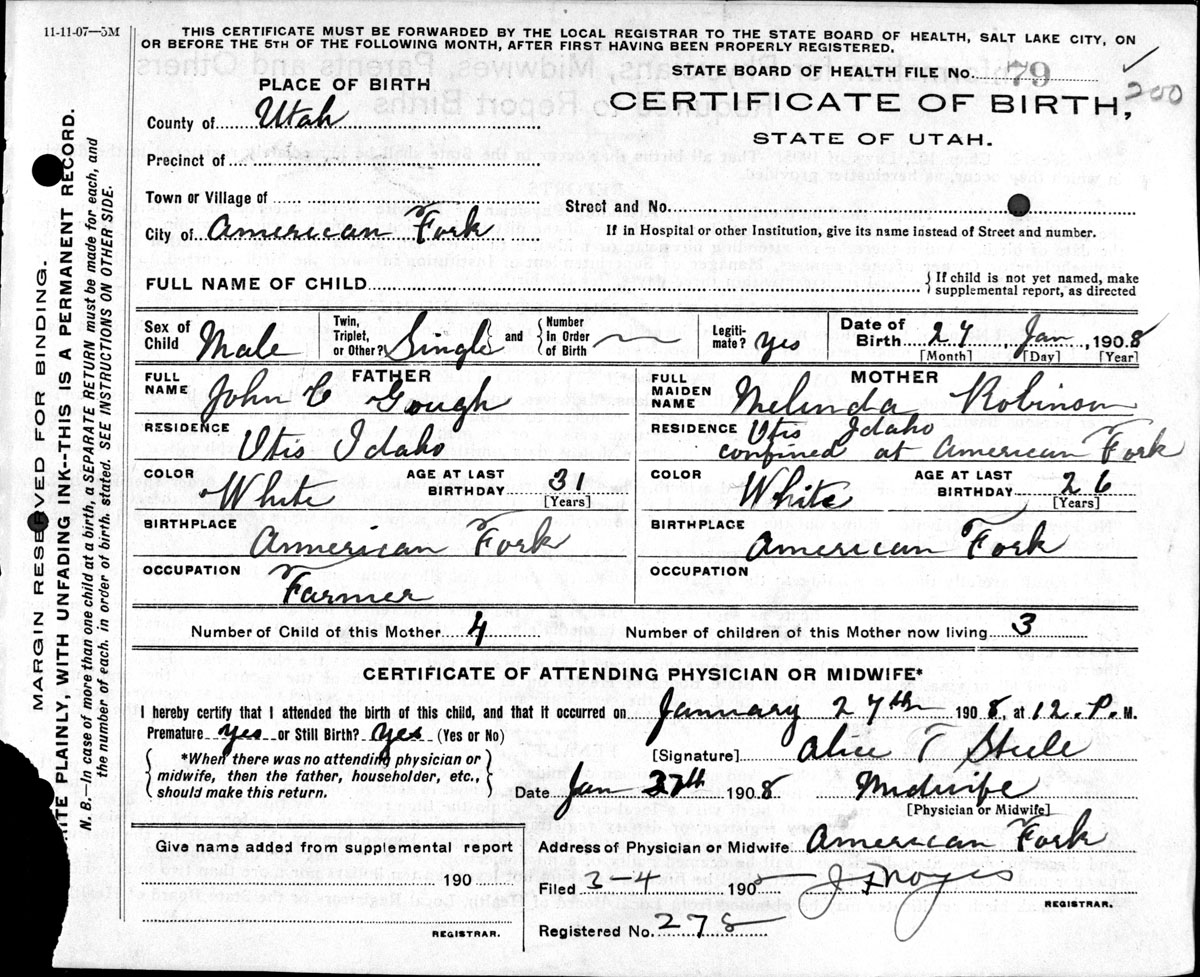 11-11-07—5M
THIS CERTIFICATE MUST BE FORWARDED BY THE LOCAL REGISTRAR TO THE STATE BOARD OF HEALTH, SALT LAKE CITY, ON
OR BEFORE THE 5TH OF THE FOLLOWING MONTH, AFTER FIRST HAVING BEEN PROPERLY REGISTERED.
STATE BOARD OF HEALTH FILE NO. 79
200
PLACE OF BIRTH
CERTIFICATE OF BIRTH,
STATE OF UTAH.
County of Utah
Precinct of
Town or Village of
Street and No.
City of American Fork
If in Hospital or other Institution, give its name instead of Street and number.
FULL NAME OF CHILD
If child is not yet named, make
supplemental report, as directed
Sex of Child Male
Twin, Triplet, or Other? Single and Number In Order of Birth
Legiti-mate? yes
Date of Birth 27 Jan, 1908
[Month] [Day] [Year]
FATHER
FULL NAME John C Gough
RESIDENCE Otis Idaho
COLOR White
AGE AT LAST BIRTHDAY 31
[Years]
BIRTHPLACE American Fork
OCCUPATION Farmer
MOTHER
FULL MAIDEN NAME Melinda Robinson
RESIDENCE Otis Idaho
confined at American Fork
COLOR White
AGE AT LAST BIRTHDAY 26
[Years]
BIRTHPLACE American Fork
OCCUPATION
Number of Child of this Mother 4
Number of children of this Mother now living 3
CERTIFICATE OF ATTENDING PHYSICIAN OR MIDWIFE*
I hereby certify that I attended the birth of this child, and that it occurred on January 27th 1908, at 12.P.M.
Premature yes or Still Birth? yes (Yes or No)
[Signature] Alice T Steele
*When there was no attending physician or
midwife, then the father, householder, etc.,
should make this return.
Date Jan 27th 1908 Midwife
[Physician or Midwife]
Give name added from supplemental report
190
REGISTRAR.
Address of Physician or Midwife American Fork
Filed 3-4 1908 J F Noyes
REGISTRAR.
Registered No. 278
MARGIN RESERVED FOR BINDING.
PLAINLY, WITH UNFADING INK--THIS IS A PERMANENT RECORD.
N. B.—In case of more than one child at a birth, a SEPARATE RETURN must be made for each, and
the number of each, in order of birth, stated. SEE INSTRUCTIONS ON OTHER SIDE.